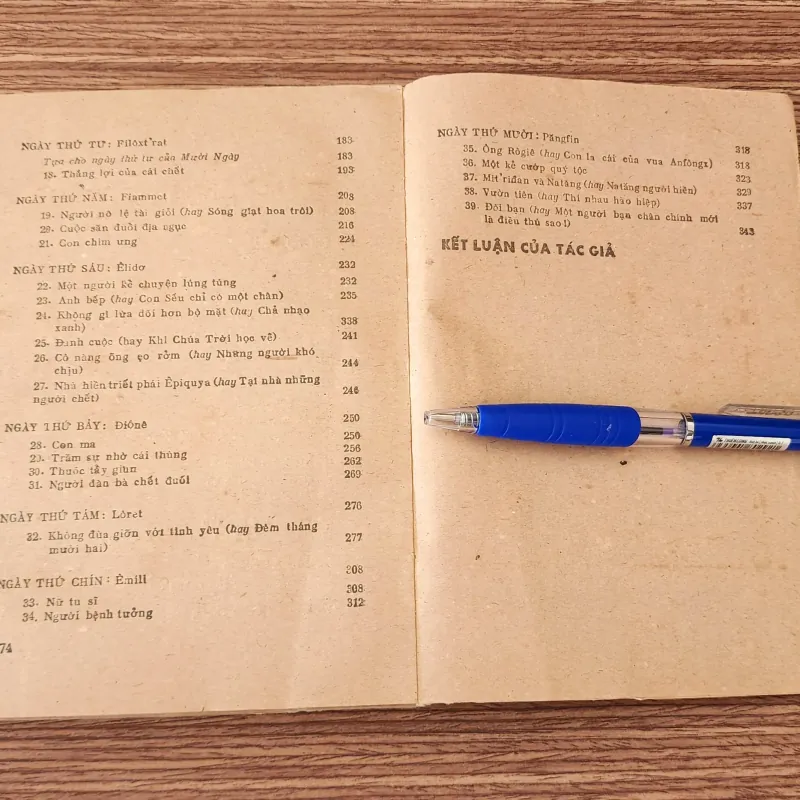 NGÀY THỨ TƯ: Filôxt'rat 183
Tựa cho ngày thứ tư của Mười Ngày 183
18. Thắng lợi của cái chết 193
NGÀY THỨ NĂM: Fiammet 208
19. Người nô lệ tài giỏi (hay Sóng giạt hoa trôi) 208
20. Cuộc săn đuổi địa ngục 216
21. Con chim ưng 224
NGÀY THỨ SÁU: Êlidơ 232
22. Một người kể chuyện lúng túng 232
23. Anh bếp (hay Con Sếu chỉ có một chân) 235
24. Không gì lừa dối hơn bộ mặt (hay Chả nhạo
xanh) 338
25. Đánh cuộc (hay Khi Chúa Trời học vẽ) 241
26. Cô nàng õng ẹo rởm (hay Những người khó
chịu) 244
27. Nhà hiền triết phái Êpiquya (hay Tại nhà những
người chết) 246
NGÀY THỨ BẢY: Điônê 250
28. Con ma 250
29. Trăm sự nhờ cái thùng 256
30. Thuốc tẩy giun 262
31. Người đàn bà chết đuối 269
NGÀY THỨ TÁM: Lôret 276
32. Không đùa giỡn với tình yêu (hay Đêm tháng
mười hai) 277
NGÀY THỨ CHÍN: Êmili 308
33. Nữ tu sĩ 308
34. Người bệnh tưởng 312
74
NGÀY THỨ MƯỜI: Păngfin 318
35. Ông Rôgiê (hay Con la cái của vua Anfôngx) 318
36. Một kẻ cướp quý tộc 323
37. Mit'riđan và Natăng (hay Natăng người hiền) 329
38. Vườn tiên (hay Thi nhau hào hiệp) 337
39. Đôi bạn (hay Một người bạn chân chính mới
là điều thú sao!) 343
KẾT LUẬN CỦA TÁC GIẢ